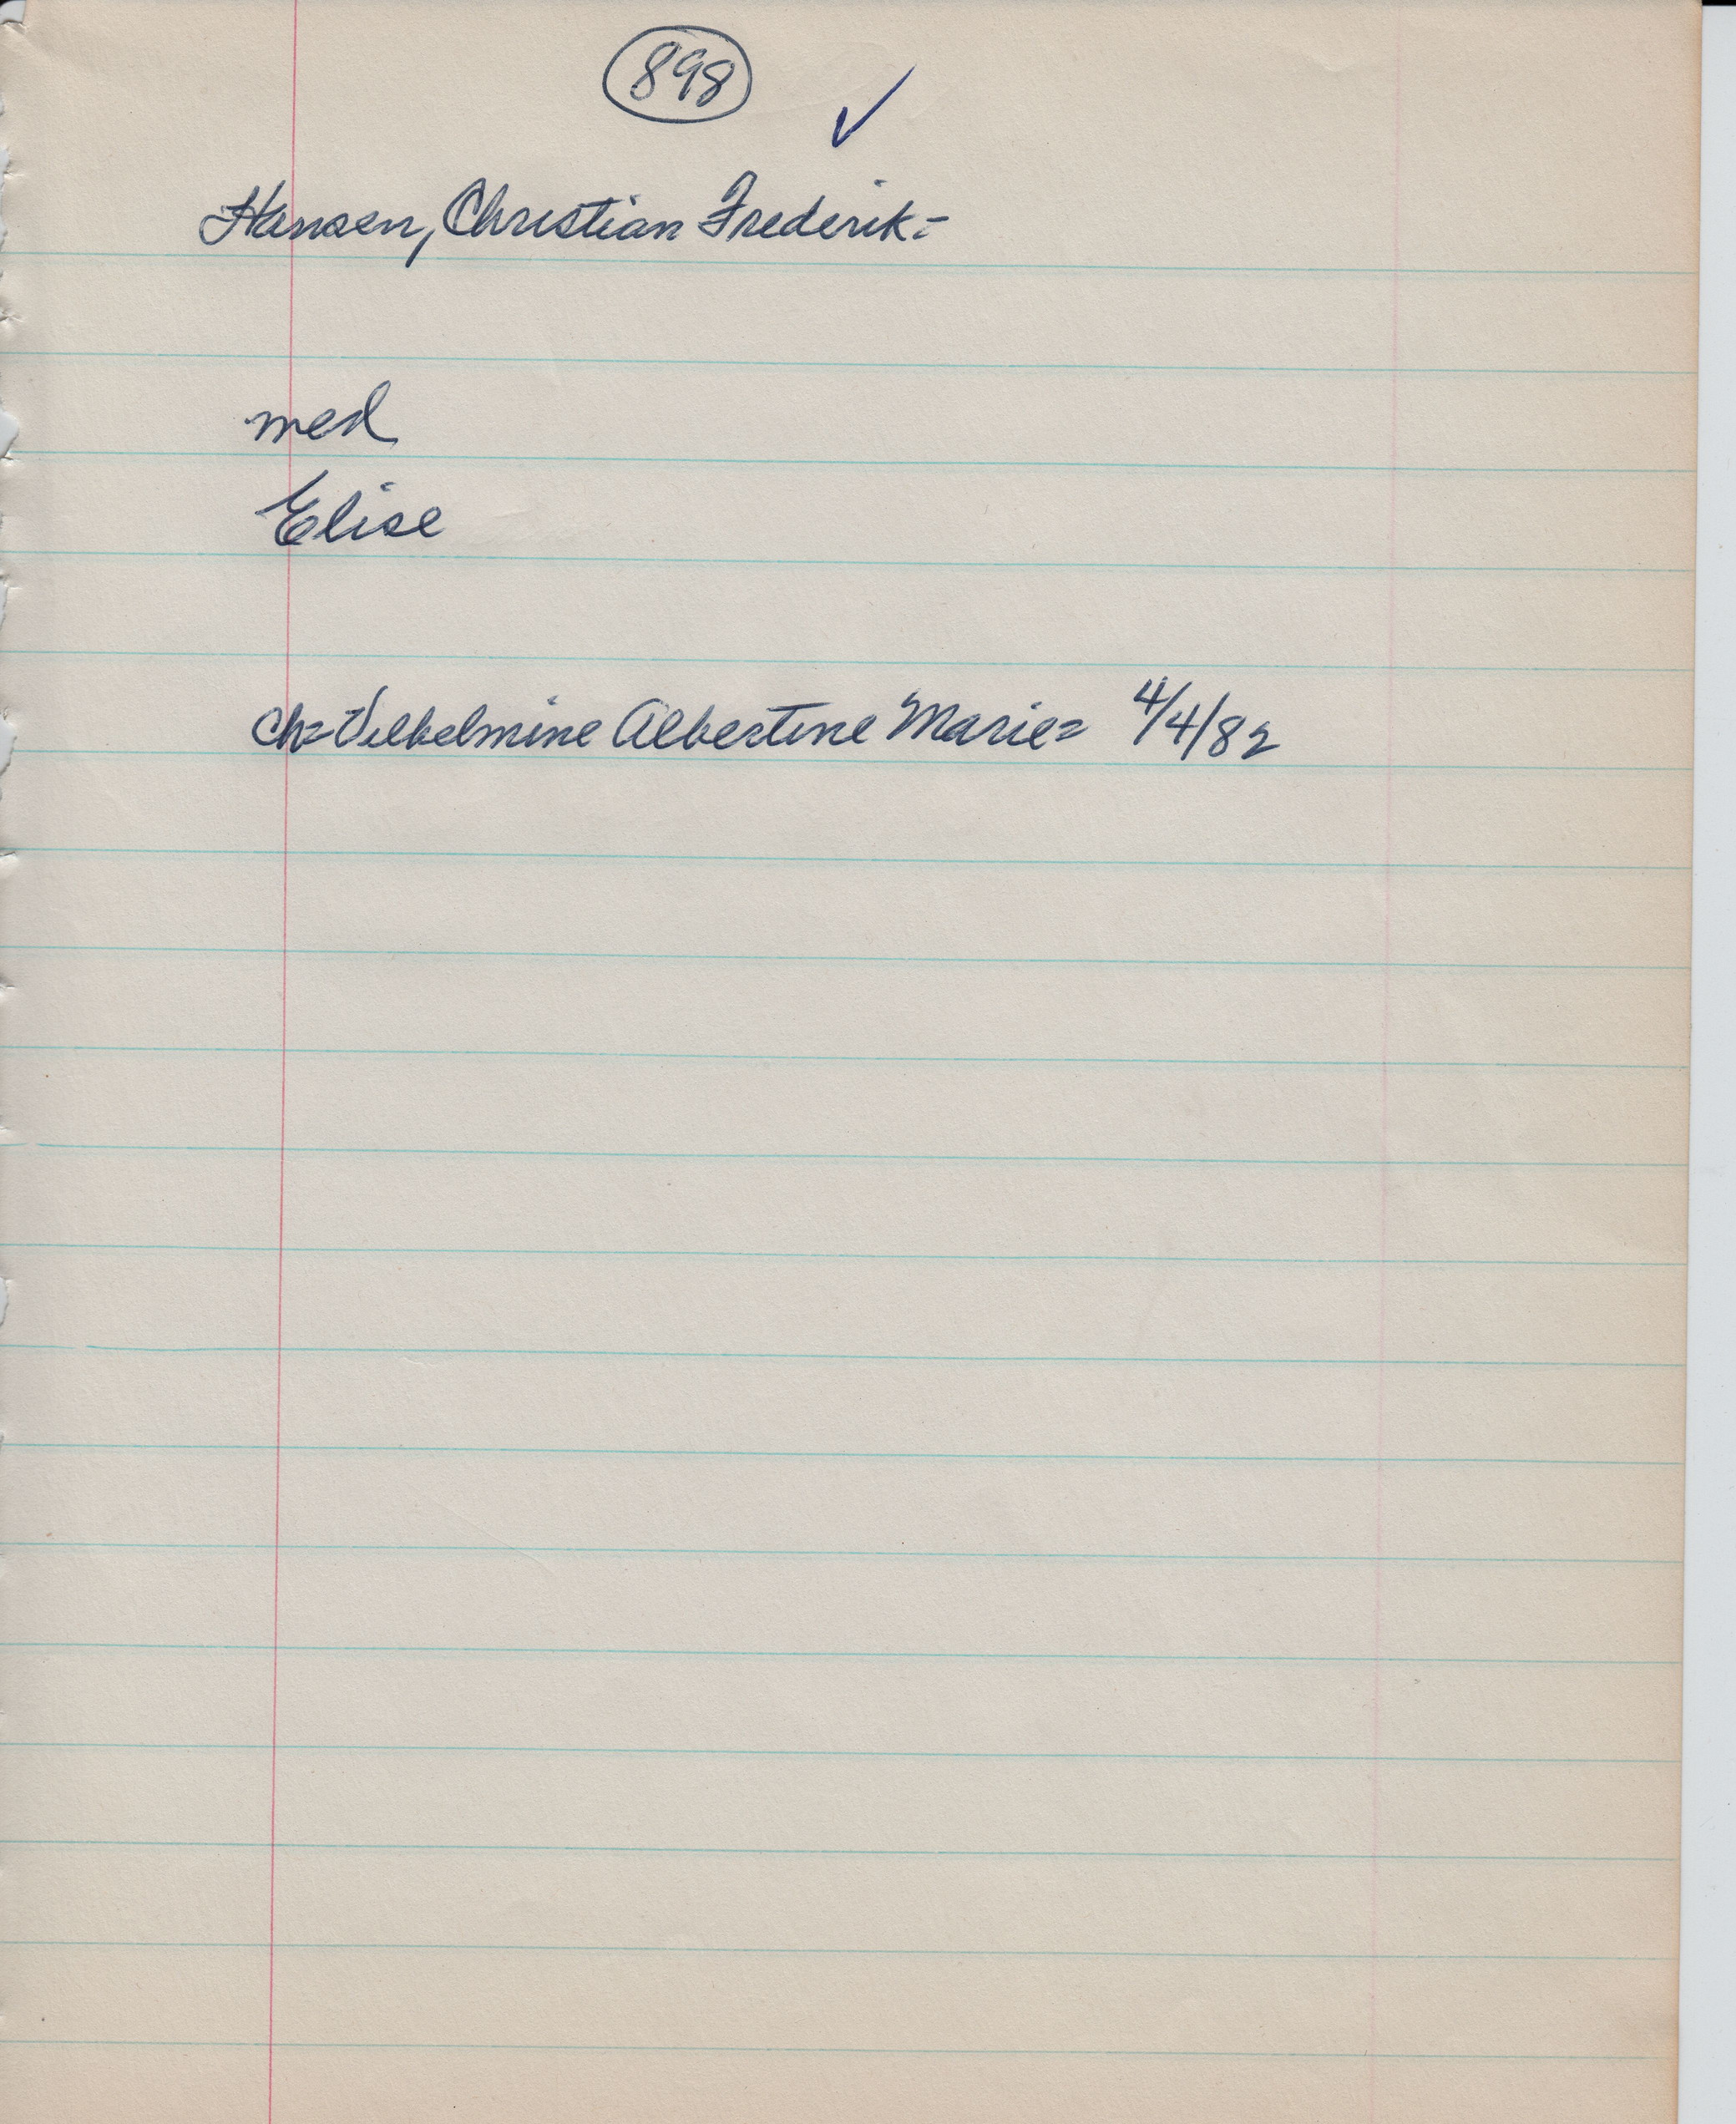 898 ✓
Hansen, Christian Frederik=
med
Elise
Ch= Vilhelmine Albertine Marie= 4/4/82